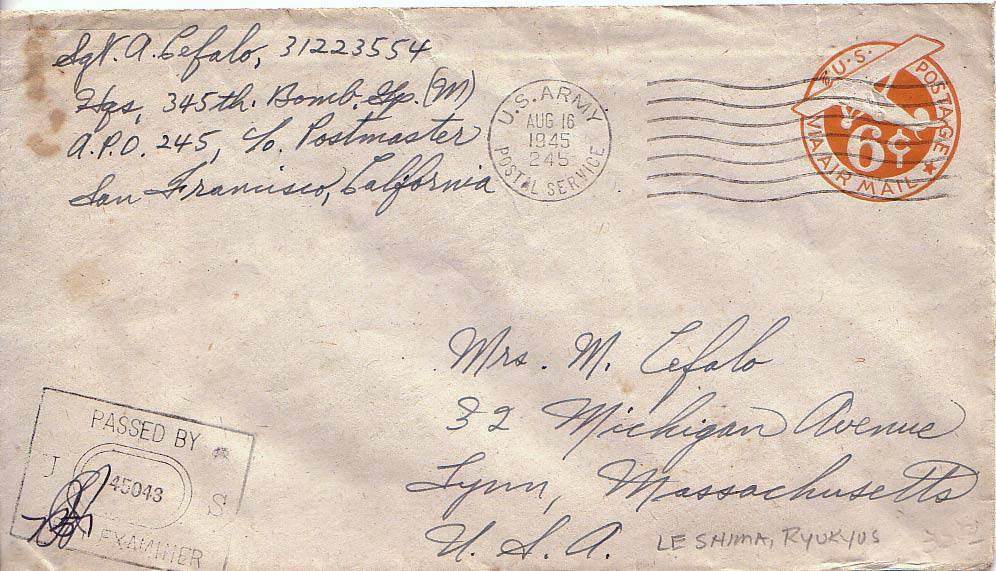 Sgt. A. Cefalo, 31223554
Hqs, 345th. Bomb. Gp. (M)
A.P.O. 245, c/o. Postmaster
San Francisco, California
U.S. ARMY
AUG 16
1945
245
POSTAL SERVICE
U.S. POSTAGE
6¢
VIA AIR MAIL
Mrs. M. Cefalo
32 Michigan Avenue
Lynn, Massachusetts
U. S. A.
LE SHIMA, RYUKYUS
PASSED BY
U S
45043
ARMY EXAMINER